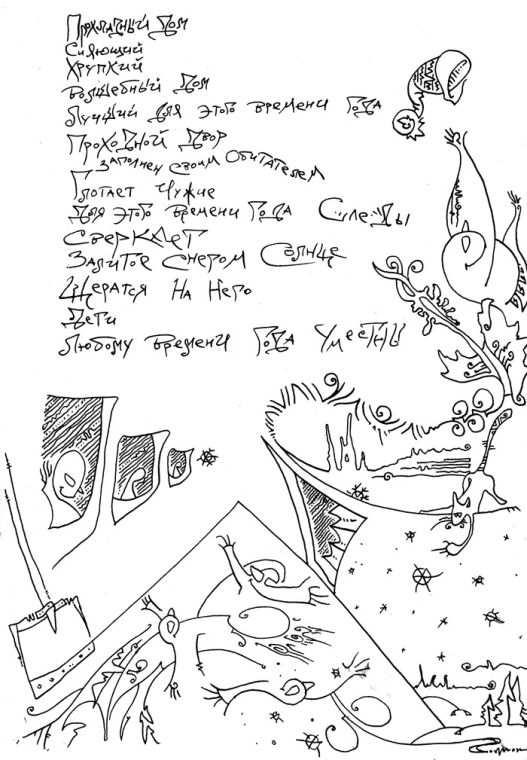 Прохладный Дом
Сияющий
Хрупкий
Волшебный Дом
Лучший для этого времени года
Проходной двор
Заполнен своим обитателем
Глотает чужие
Для этого времени года следы
Сверкает
Залитое снегом солнце
Щерятся на него
Дети
Любому времени года уместны